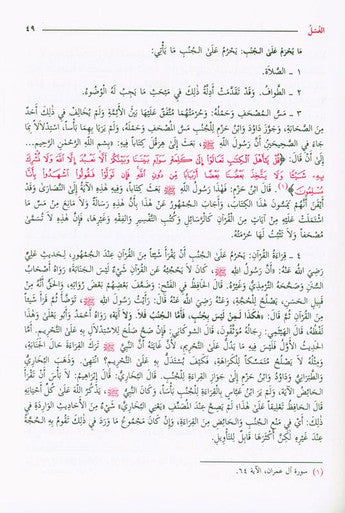 الغُسْلُ ٤٩
مَا يَحْرُمُ عَلَى الجُنُبِ: يَحْرُمُ عَلَى الجُنُبِ مَا يَأْتِي:
١ - الصَّلاَةُ.
٢ - الطَّوافُ. وَقَدْ تَقَدَّمَتْ أَدِلَّةُ ذلِكَ فِي مَبْحَثِ مَا يَجِبُ لَهُ الْوُضُوءُ.
٣ - مَسُّ المُصْحَفِ وَحَمْلُهُ، وَحُرْمَتُهُمَا مُتَّفَقٌ عَلَيْهَا بَيْنَ الأَئِمَّةِ وَلَمْ يُخَالِفْ فِي ذلِكَ أَحَدٌ
مِنَ الصَّحَابَةِ، وَجَوَّزَ دَاوُدُ وَابْنُ حَزْمٍ لِلْجُنُبِ مَسَّ المُصْحَفِ وَحَمْلَهُ، وَلَمْ يَرَيَا بِهِمَا بَأْساً، اسْتِدْلاَلاً بِمَا
جَاءَ فِي الصَّحِيحَيْنِ أَنَّ رَسُولَ اللَّهِ ﷺ بَعَثَ إِلَى هِرَقْلَ كِتَاباً فِيهِ: بِسْمِ اللَّهِ الرَّحْمٰنِ الرَّحِيمِ...
إِلَى أَنْ قَالَ: ﴿قُلْ يَا أَهْلَ الْكِتَابِ تَعَالَوْا إِلَى كَلِمَةٍ سَوَاءٍ بَيْنَنَا وَبَيْنَكُمْ أَلَّا نَعْبُدَ إِلَّا اللَّهَ وَلَا نُشْرِكَ
بِهِ شَيْئًا وَلَا يَتَّخِذَ بَعْضُنَا بَعْضًا أَرْبَابًا مِنْ دُونِ اللَّهِ فَإِنْ تَوَلَّوْا فَقُولُوا اشْهَدُوا بِأَنَّا
مُسْلِمُونَ﴾(١). قَالَ ابْنُ حَزْمٍ: فَهذَا رَسُولُ اللَّهِ ﷺ بَعَثَ كِتَاباً وَفِيهِ هذِهِ الآيَةُ إِلَى النَّصَارَى وَقَدْ
أَيْقَنَ أَنَّهُمْ يَمَسُّونَ هذَا الكِتَابَ، وَأَجَابَ الجُمْهُورُ عَنْ هذَا بِأَنَّ هذِهِ رِسَالَةٌ وَلاَ مَانِعَ مِنْ مَسِّ مَا
اشْتَمَلَتْ عَلَيْهِ مِنْ آيَاتٍ مِنَ القُرْآنِ كَالرَّسَائِلِ وَكُتُبِ التَّفْسِيرِ وَالفِقْهِ وَغَيْرِهَا، فَإِنَّ هذِهِ لاَ تُسَمَّى
مُصْحَفاً وَلاَ تَثْبُتُ لَهَا حُرْمَتُهُ.
٤ - قِرَاءَةُ القُرْآنِ: يَحْرُمُ عَلَى الجُنُبِ أَنْ يَقْرَأَ شَيْئاً مِنَ القُرْآنِ عِنْدَ الجُمْهُورِ، لِحَدِيثِ عَلِيٍّ
رَضِيَ اللَّهُ عَنْهُ: أَنَّ رَسُولَ اللَّهِ ﷺ كَانَ لاَ يَحْجُبُهُ عَنِ القُرْآنِ شَيْءٌ لَيْسَ الجَنَابَةَ، رَوَاهُ أَصْحَابُ
السُّنَنِ وَصَحَّحَهُ التِّرْمِذِيُّ وَغَيْرُهُ، قَالَ الحَافِظُ فِي الفَتْحِ: وَضَعَّفَ بَعْضُهُمْ بَعْضَ رُوَاتِهِ، وَالحَقُّ أَنَّهُ مِنْ
قَبِيلِ الحَسَنِ، يَصْلُحُ لِلْحُجَّةِ، وَعَنْهُ رَضِيَ اللَّهُ عَنْهُ، قَالَ: رَأَيْتُ رَسُولَ اللَّهِ ﷺ، تَوَضَّأَ ثُمَّ قَرَأَ شَيْئاً
مِنَ القُرْآنِ ثُمَّ قَالَ: «هَكَذَا لِمَنْ لَيْسَ بِجُنُبٍ، فَأَمَّا الجُنُبُ فَلاَ، وَلاَ آيَةَ» رَوَاهُ أَحْمَدُ وَأَبُو يَعْلَى وَهذَا
لَفْظُهُ، قَالَ الهَيْثَمِيُّ: رِجَالُهُ مُوَثَّقُونَ، قَالَ الشَّوكَانِيُّ: فَإِنْ صَحَّ صَلَحَ لِلاسْتِدْلاَلِ بِهِ عَلَى التَّحْرِيمِ. أَمَّا
الحَدِيثُ الأَوَّلُ فَلَيْسَ فِيهِ مَا يَدُلُّ عَلَى التَّحْرِيمِ، لأَنَّ غَايَتَهُ أَنَّ النَّبِيَّ ﷺ تَرَكَ القِرَاءَةَ حَالَ الجَنَابَةِ،
وَمِثْلُهُ لاَ يَصْلُحُ مُتَمَسَّكاً لِلْكَرَاهَةِ، فَكَيْفَ يُسْتَدَلُّ بِهِ عَلَى التَّحْرِيمِ؟ انْتَهَى. وَذَهَبَ البُخَارِيُّ
وَالطَّبَرَانِيُّ وَدَاوُدُ وَابْنُ حَزْمٍ إِلَى جَوَازِ القِرَاءَةِ لِلْجُنُبِ. قَالَ البُخَارِيُّ: قَالَ إِبْرَاهِيمُ: لاَ بَأْسَ أَنْ تَقْرَأَ
الحَائِضُ الآيَةَ، وَلَمْ يَرَ ابْنُ عَبَّاسٍ بِالقِرَاءَةِ لِلْجُنُبِ بَأْساً، وَكَانَ النَّبِيُّ ﷺ، يَذْكُرُ اللَّهَ عَلَى كُلِّ أَحْيَانِهِ
قَالَ الحَافِظُ تَعْلِيقاً عَلَى هذَا: لَمْ يَصِحَّ عِنْدَ المُصَنِّفِ «يَعْنِي البُخَارِيَّ» شَيْءٌ مِنَ الأَحَادِيثِ الوَارِدَةِ فِي
ذلِكَ: أَيْ فِي مَنْعِ الجُنُبِ وَالحَائِضِ مِنَ القِرَاءَةِ، وَإِنْ كَانَ مَجْمُوعُ مَا وَرَدَ فِي ذلِكَ تَقُومُ بِهِ الحُجَّةُ
عِنْدَ غَيْرِهِ لكِنَّ أَكْثَرَهَا قَابِلٌ لِلتَّأْوِيلِ.
(١) سورة آل عمران، الآية ٦٤.